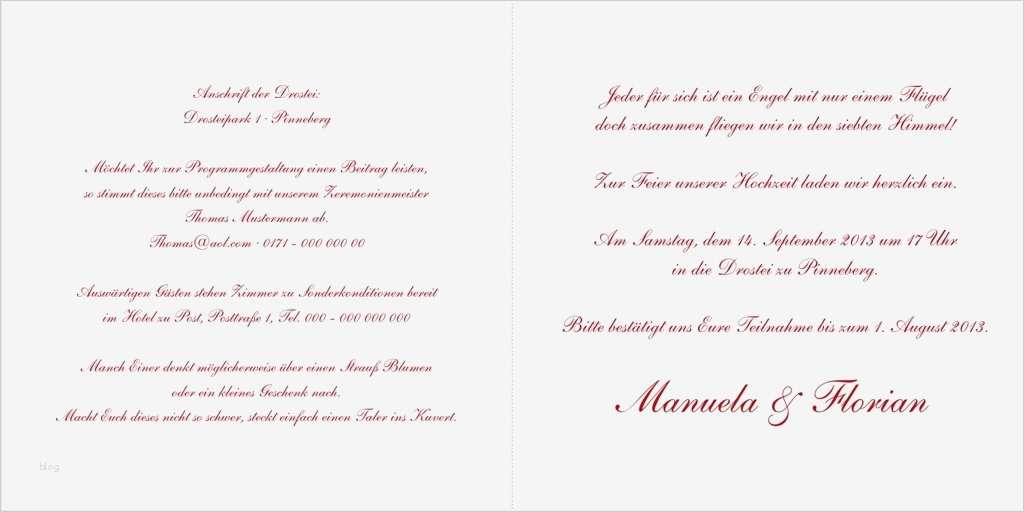 Anschrift der Drostei:
Drosteipark 1 · Pinneberg
Möchtet Ihr zur Programmgestaltung einen Beitrag leisten,
so stimmt dieses bitte unbedingt mit unserem Zeremonienmeister
Thomas Mustermann ab.
Thomas@aol.com · 0171 - 000 000 00
Auswärtigen Gästen stehen Zimmer zu Sonderkonditionen bereit
im Hotel zu Post, Posttraße 1, Tel. 000 - 000 000 000
Manch Einer denkt möglicherweise über einen Strauß Blumen
oder ein kleines Geschenk nach.
Macht Euch dieses nicht so schwer, steckt einfach einen Taler ins Kuvert.
blog
Jeder für sich ist ein Engel mit nur einem Flügel
doch zusammen fliegen wir in den siebten Himmel!
Zur Feier unserer Hochzeit laden wir herzlich ein.
Am Samstag, dem 14. September 2013 um 17 Uhr
in die Drostei zu Pinneberg.
Bitte bestätigt uns Eure Teilnahme bis zum 1. August 2013.
Manuela & Florian